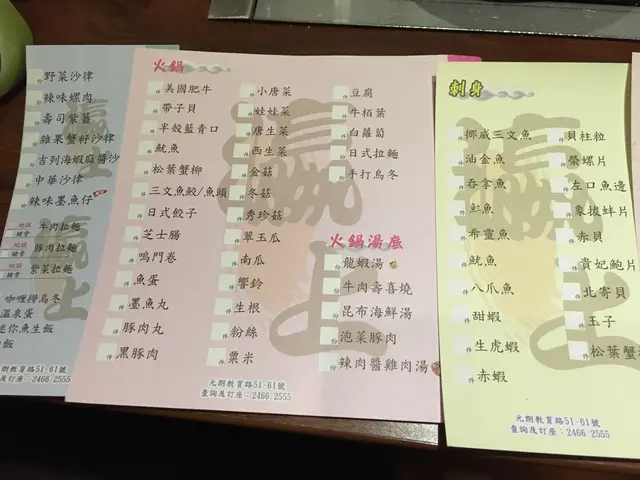 野菜沙律
辣味螺肉
壽司紫薑
雜果蟹籽沙律
吉列海蝦麻醬沙
中華沙律
辣味墨魚仔
地獄 豬骨 牛肉拉麵
地獄 豬骨 豚肉拉麵
地獄 豬骨 紫菜拉麵
咖喱撈烏冬
溫泉蛋
迷你魚生飯
飯
元朗教育路51-61號
查詢及訂座：2466 2555
火鍋
美國肥牛
帶子貝
半殼藍青口
魷魚
松葉蟹柳
三文魚鮫/魚頭
日式餃子
芝士腸
鳴門卷
魚蛋
墨魚丸
豚肉丸
黑豚肉
小唐菜
娃娃菜
唐生菜
西生菜
金菇
冬菇
秀珍菇
翠玉瓜
南瓜
響鈴
生根
粉絲
粟米
豆腐
牛栢葉
白蘿蔔
日式拉麵
手打烏冬
火鍋湯底
份 龍蝦湯
份 牛肉壽喜燒
份 昆布海鮮湯
份 泡菜豚肉
份 辣肉醬雞肉湯
元朗教育路51-61號
查詢及訂座：2466 2555
刺身
件 挪威三文魚
件 油金魚
件 吞拿魚
件 魟魚
件 希靈魚
件 魷魚
件 八爪魚
件 甜蝦
件 生虎蝦
件 赤蝦
件 貝柱粒
件 螢螺片
件 左口魚邊
件 象拔蚌片
件 赤貝
件 貴妃鮑片
件 北寄貝
件 玉子
件 松葉蟹
元朗教育路51-61號
查詢及訂座：2466 2555